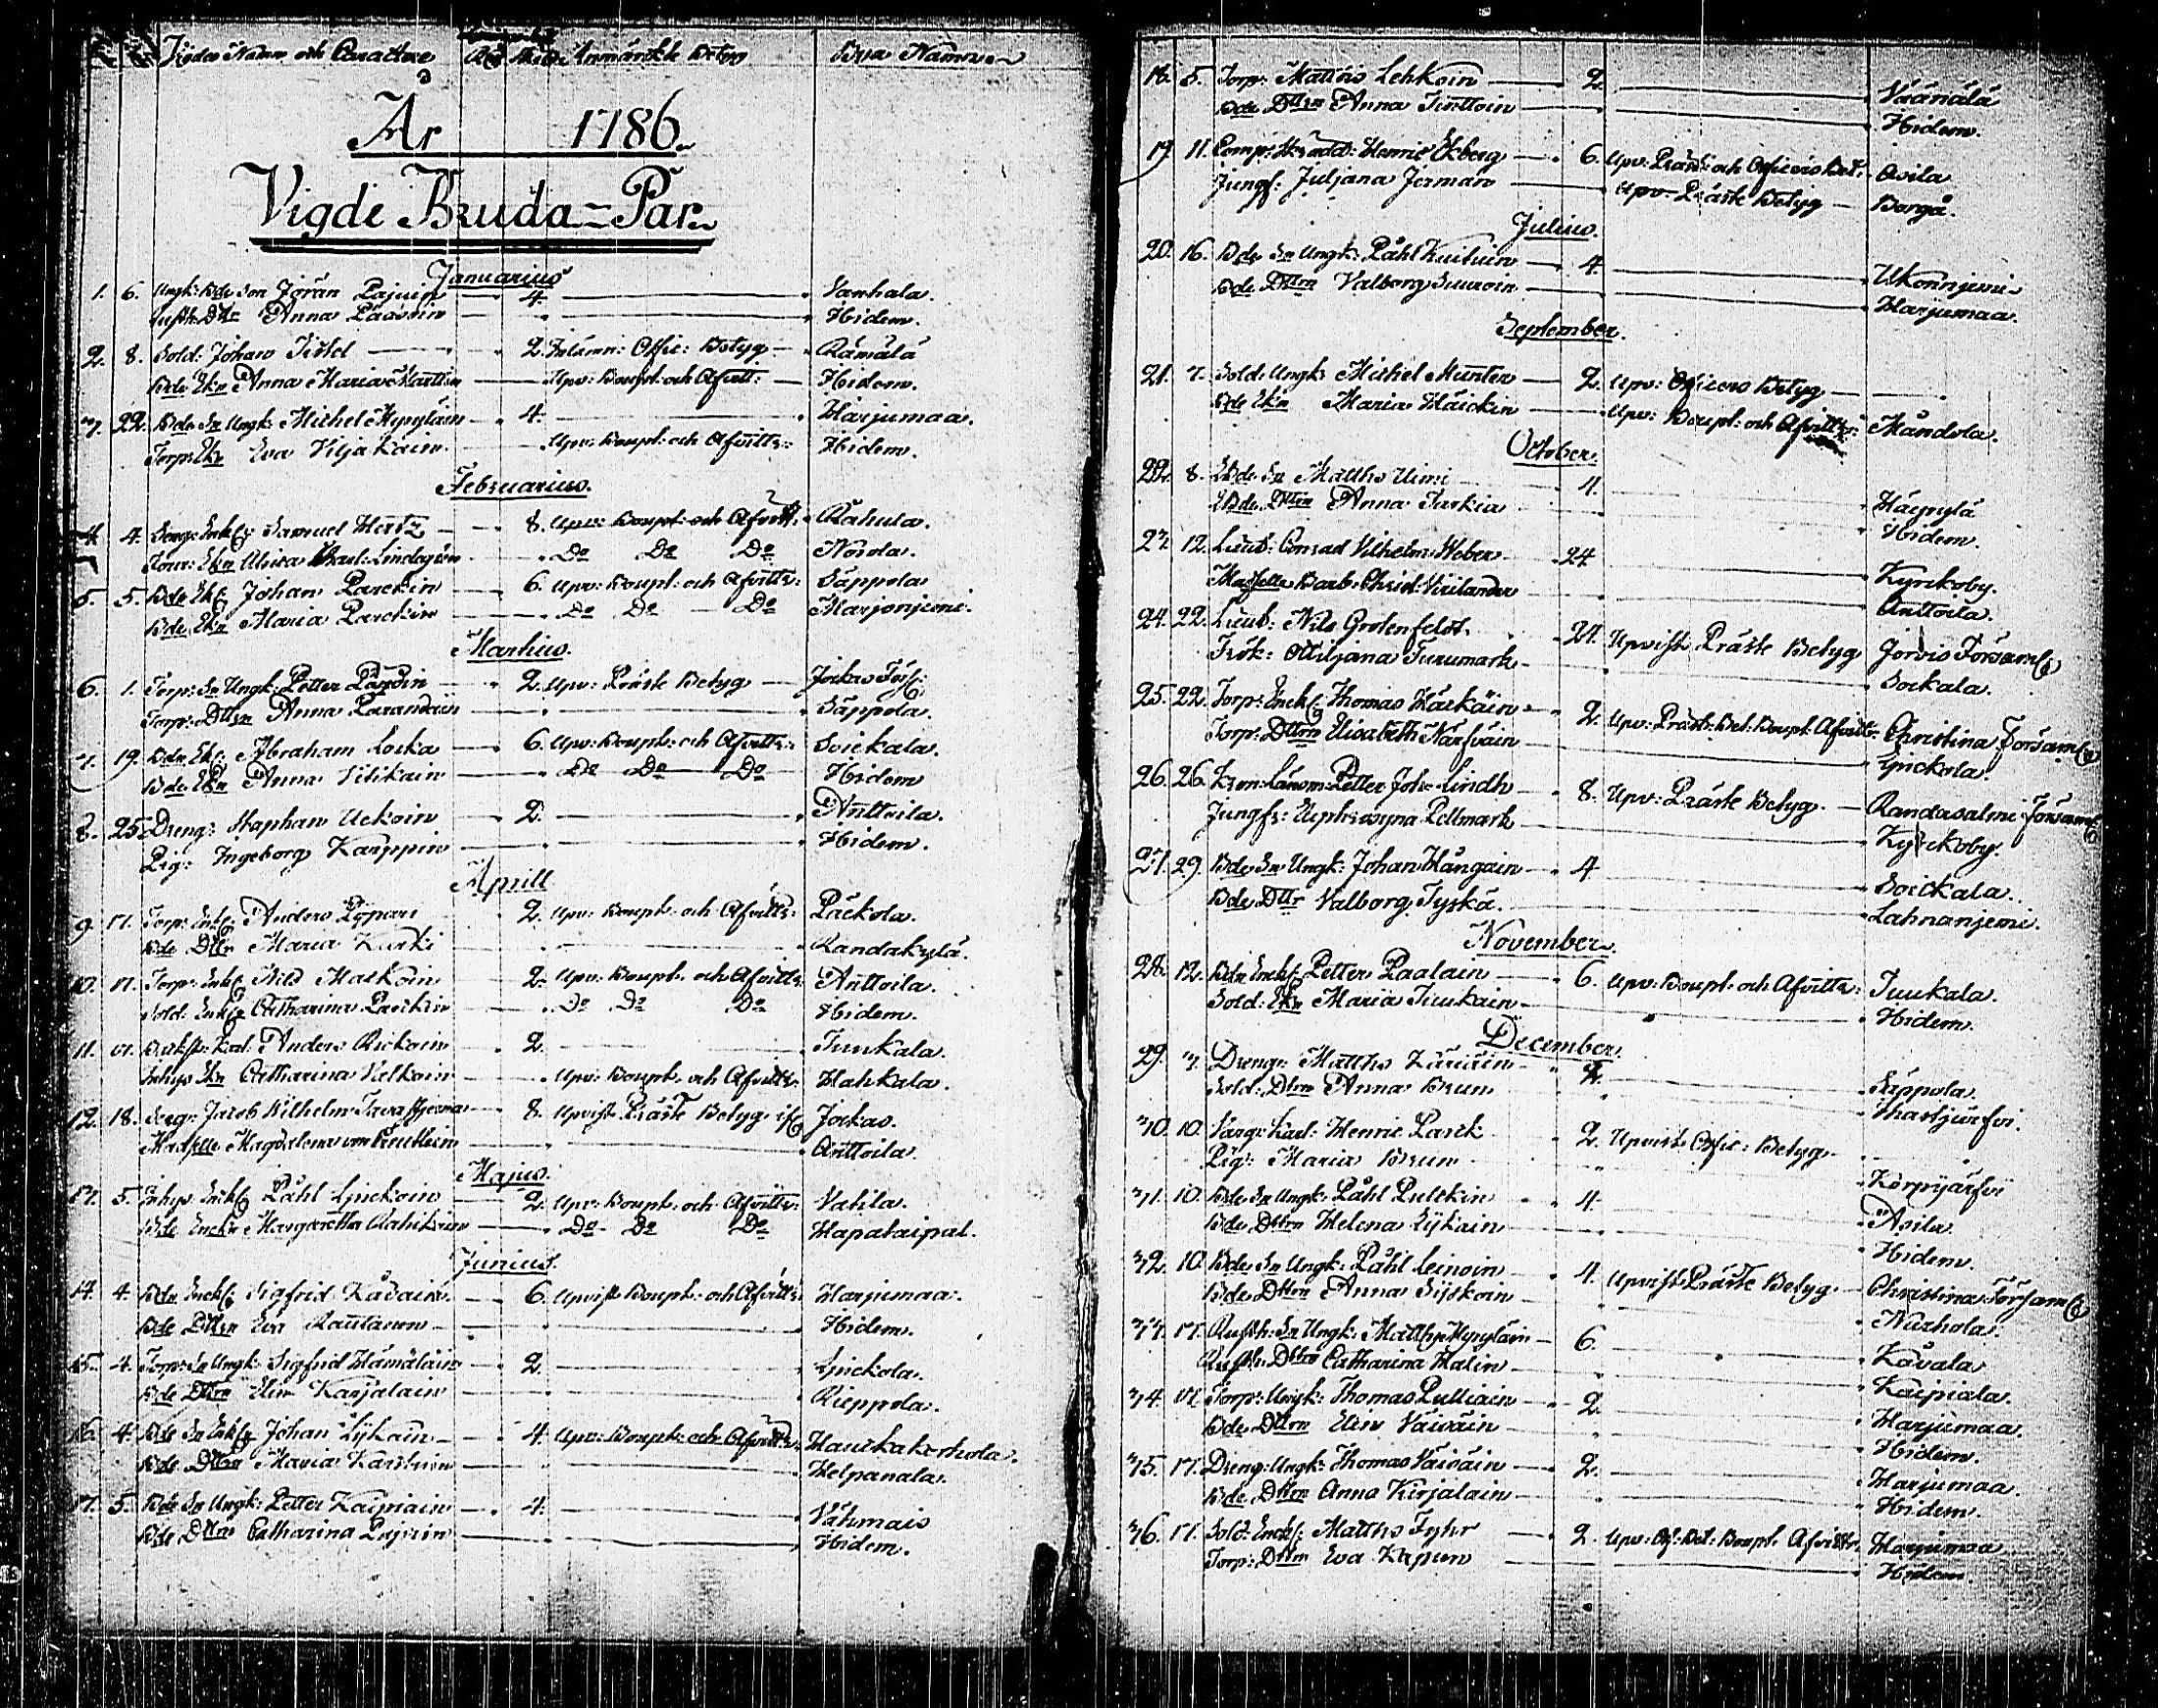 År 1786.
Vigde Bruda=Par
Januarius
1. 6. Ungk: Bde Son Jöran Pajuin 4. Vanhala.
Dttr Anna Hidem.
2. 8. Sold: Johan Tistel 2. Offic: Betyg Rämälä
Bde Ekn Anna Maria Upv: Boupt: och Afvitt: Hidem.
3. 22. Bde Sn Ungk: Michel Hyryläin 4. Harjumaa.
Torp: Ekn Eva Viljakain Upv: Boupt: och Afvittr: Hidem.
Februarius.
4. 4. Serg: Enkl: Samuel Hertz 8. Upv: Boupt: och Afvitt: Rahula.
Ekn Ulrica Lindegren Do Do Do Noisola.
5. 5. Bde Ekl: Johan Parckin 6. Upv: Boupt: och Afvittr: Säppola
Bde Ekn Maria Parckin Do Do Do Harjunjemi.
Martius.
6. 1. Torp: Sn Ungk: Petter Pändin 2. Upv: Präste Betyg Jockas Förs:
Torp: Dttrn Anna Parandain Säppola.
7. 19. Bde Ekl: Abraham Locka 6. Upv: Boupt: och Afvittr: Soickala.
Bde Ekn Anna Do Do Do Hidem
8. 25. Dreng: Staphan Uckoin 2. Anttoila.
Pig: Ingeborg Karppin Hidem.
Aprill
9. 17. Torp: Enkl: Anders Pipari 2. Upv: Boupt: och Afvittr: Päckola.
Bde Dttr Maria Kurki Randakylä.
10. 17. Torp: Enkl: Nils Matkoin 2. Upv: Boupt: och Afvittr: Anttoila.
Sold: Enkn Catharina Parckin Do Do Do Hidem.
11. 17. Karl: Anders Rickoin 2. Tuukala.
Inhys Ekn Catharina Valkoin Upv: Boupt: och Afvittr: Hahkala.
12. 18. Serg: Jacob Wilhelm Tavastsjerna 8. Upvist Präste Betyg Jockas.
Madselle Magdalena von Anttoila.
Majus.
13. 5. Inhys Enkl: Påhl Lynckoin 2. Upv: Boupt: och Afvittr: Vahla.
Bde Enckn Margaretha Do Do Do Hapataipal.
Junius.
14. 4. Bde Enckl: Sigfrid Kåvain 6. Upvist Boupt: och Afvittr: Harjumaa.
Bde Dttrn Eva Rautanen Hidem.
15. 4. Torp: Sn Ungk: Sigfrid Hämäläin 2. Lynckola.
Bde Dttrn Elin Karjalain Rieppola.
16. 4. Bde Sn Enkl: Johan Lykain 4. Upv: Boupt: och Afvittr: Hauckakorhola.
Bde Dttrn Maria Karhuin Helpanala.
17. 5. Bde Sn Ungk: Petter Kaipiain 4. Vatumais
Bde Dttrn Catharina Pajuin Hidem.
18. 5. Torp: Matthis Lehkoin 2. Väänälä
Bde Dttrn Anna Tinttoin Hidem.
19. 11. Comp: Skrädd: Henric Ekberg 6. Upv: Präste och Officers Bet: Asila
Jungf: Juljana Jerman Upv Präste Betyg Borgå.
Julius.
20. 16. Bde Sn Ungk: Påhl Kuituin 4. Ukonnjemi
Bde Dttrn Valborg Suuroin Harjumaa.
September.
21. 7. Sold: Ungk: Michel Munter 2. Upv: Officers Betyg
Bde Ekn Maria Häickin Upv: Boupt: och Afvittr: Mändola.
October.
22. 8. Bde Sn Matths Uimi 4. Häyrylä
Bde Dttrn Anna Turkia Hidem.
23. 12. Lieut: Conrad Vilhelm Weber 24 Kyrckoby.
Madselle Barb: Christ: Virilander Anttoila.
24. 22. Lieut: Nils Grotenfelst 24. Upvist Präste Betyg Jorois Församl:
Frök: Ottiljana Furumark Soikala.
25. 22. Torp: Enckl: Thomas Härkäin 2. Upv: Präst: Bet: Boupt: Afvittr: Christina Församl:
Torp: Dttrn Elisabeth Närfväin Lynckola
26. 26. Kron: Länsm: Petter Joh: Lindh 8. Upv: Präste Betyg. Randasalmi Församl:
Jungfr: Euphrosyna Pellmark Kyrckoby.
27. 29. Bde Sn Ungk: Johan Hängain 4 Soickala.
Bde Dttr Valborg Tyskä. Lahnanjemi.
November.
28. 12. Bde Enckl: Petter Paalain 6. Upv: Boupt: och Afvittr: Tuukala.
Sold: Ekn Maria Tiukain Hidem.
December.
29. 3. Dreng: Matths 2. Säppola.
Sold: Dttrn Anna Brun Hartjärfvi.
30. 10. Varg: Karl: Henric Parck 2. Upvist Offic: Betyg
Pig: Maria Brun Körpijärfvi
31. 10. Bde Sn Ungk: Påhl Pulckin 4. Asila
Bde Dttrn Helena Lykain Hidem.
32. 10. Bde Sn Ungk: Påhl Leinoin 4. Upvist Präste Betyg. Christina Församl:
Bde Dttrn Anna Sijskoin Närhola.
33. 17. Rusth: Sn Ungk: Matths Hyryläin 6. Kåvala
Rusth: Dttrn Catharina Halin Kaipiala.
34. 17. Torp: Ungk: Thomas Pulliain 2. Harjumaa
Bde Dttrn Elin Väisäin Hidem.
35. 17. Dreng: Ungk: Thomas Väisäin 2. Harjumaa.
Bde Dttrn Anna Kirjalain Hidem.
36. 17. Sold: Enckl: Matths Fyhr 2. Upv: Of: Bet: Boupt: Afvittr: Harjumaa
Torp: Dttrn Eva Hidem.